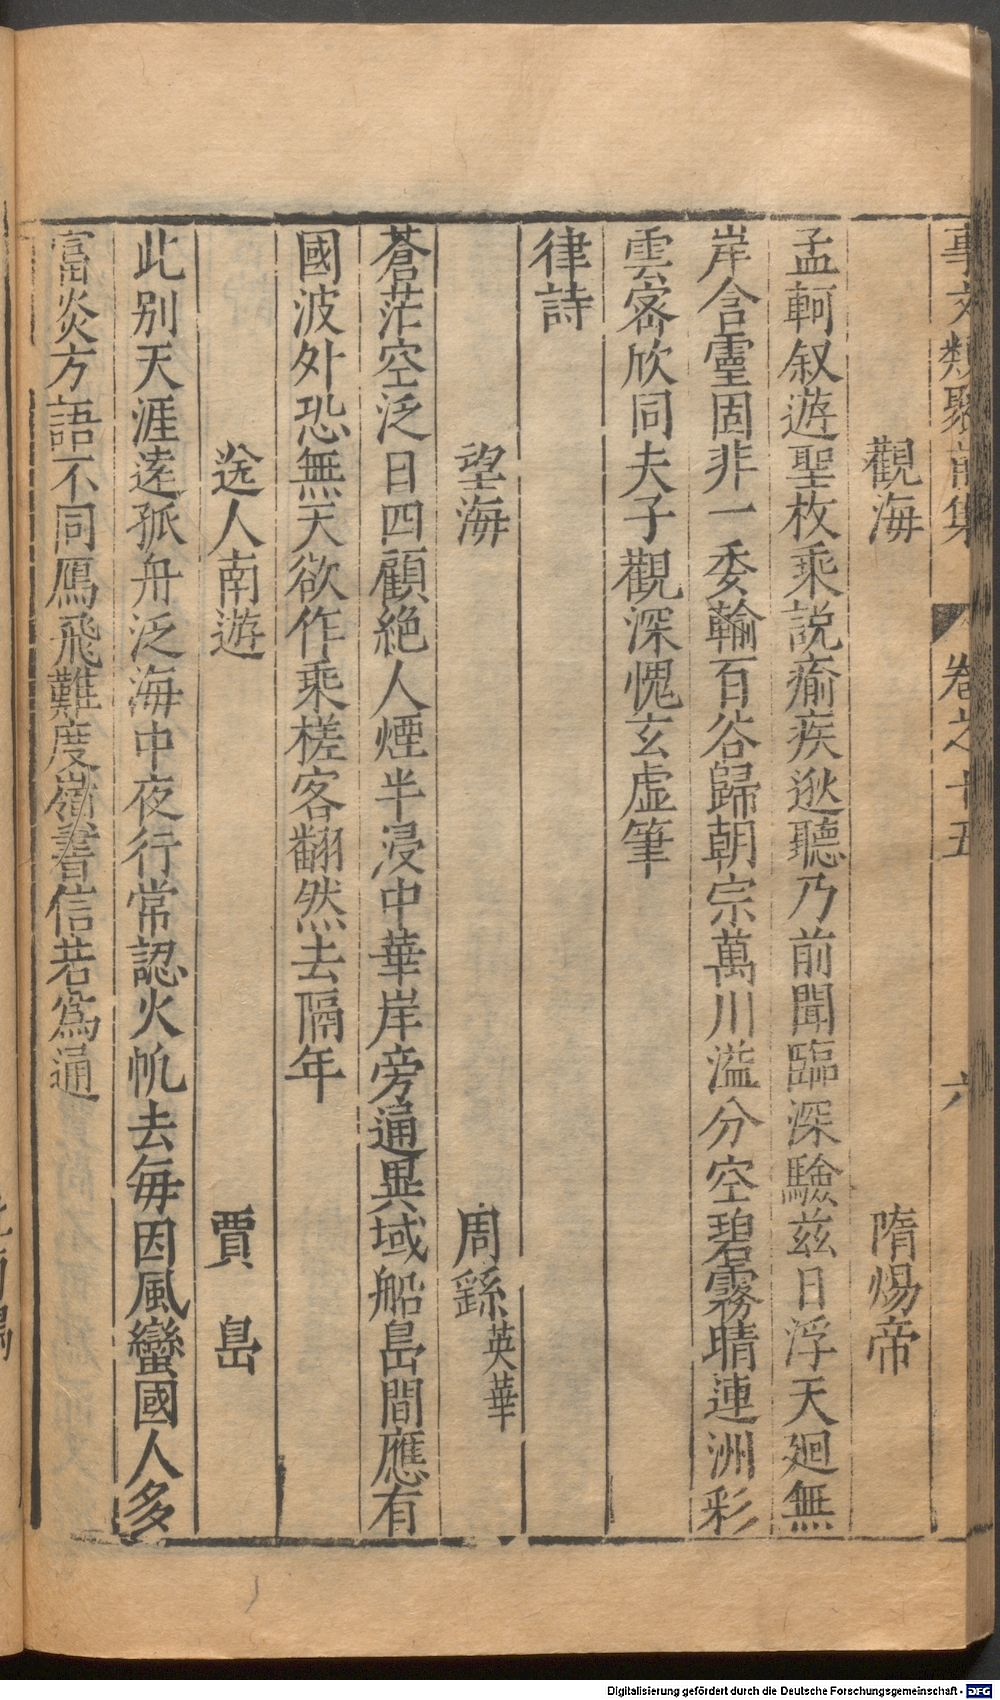 事文類聚前集 卷之十五 六
觀海 隋煬帝
孟軻叙遊聖枚乘説瘉疾逖聽乃前聞臨深驗兹日浮天廻無
岸含靈固非一委輸百谷歸朝宗萬川溢分空碧霧晴連洲彩
雲宻欣同夫子觀深愧玄虛筆
律詩
望海 周繇英華
蒼茫空泛日四顧絶人煙半浸中華岸旁通異域船島間應有
國波外恐無天欲作乘槎客翻然去隔年
送人南遊 賈島
此别天涯逺孤舟泛海中夜行常認火帆去每因風蠻國人多
富炎方語不同鴈飛難度嶺書信若爲通
Digitalisierung gefördert durch die Deutsche Forschungsgemeinschaft - DFG